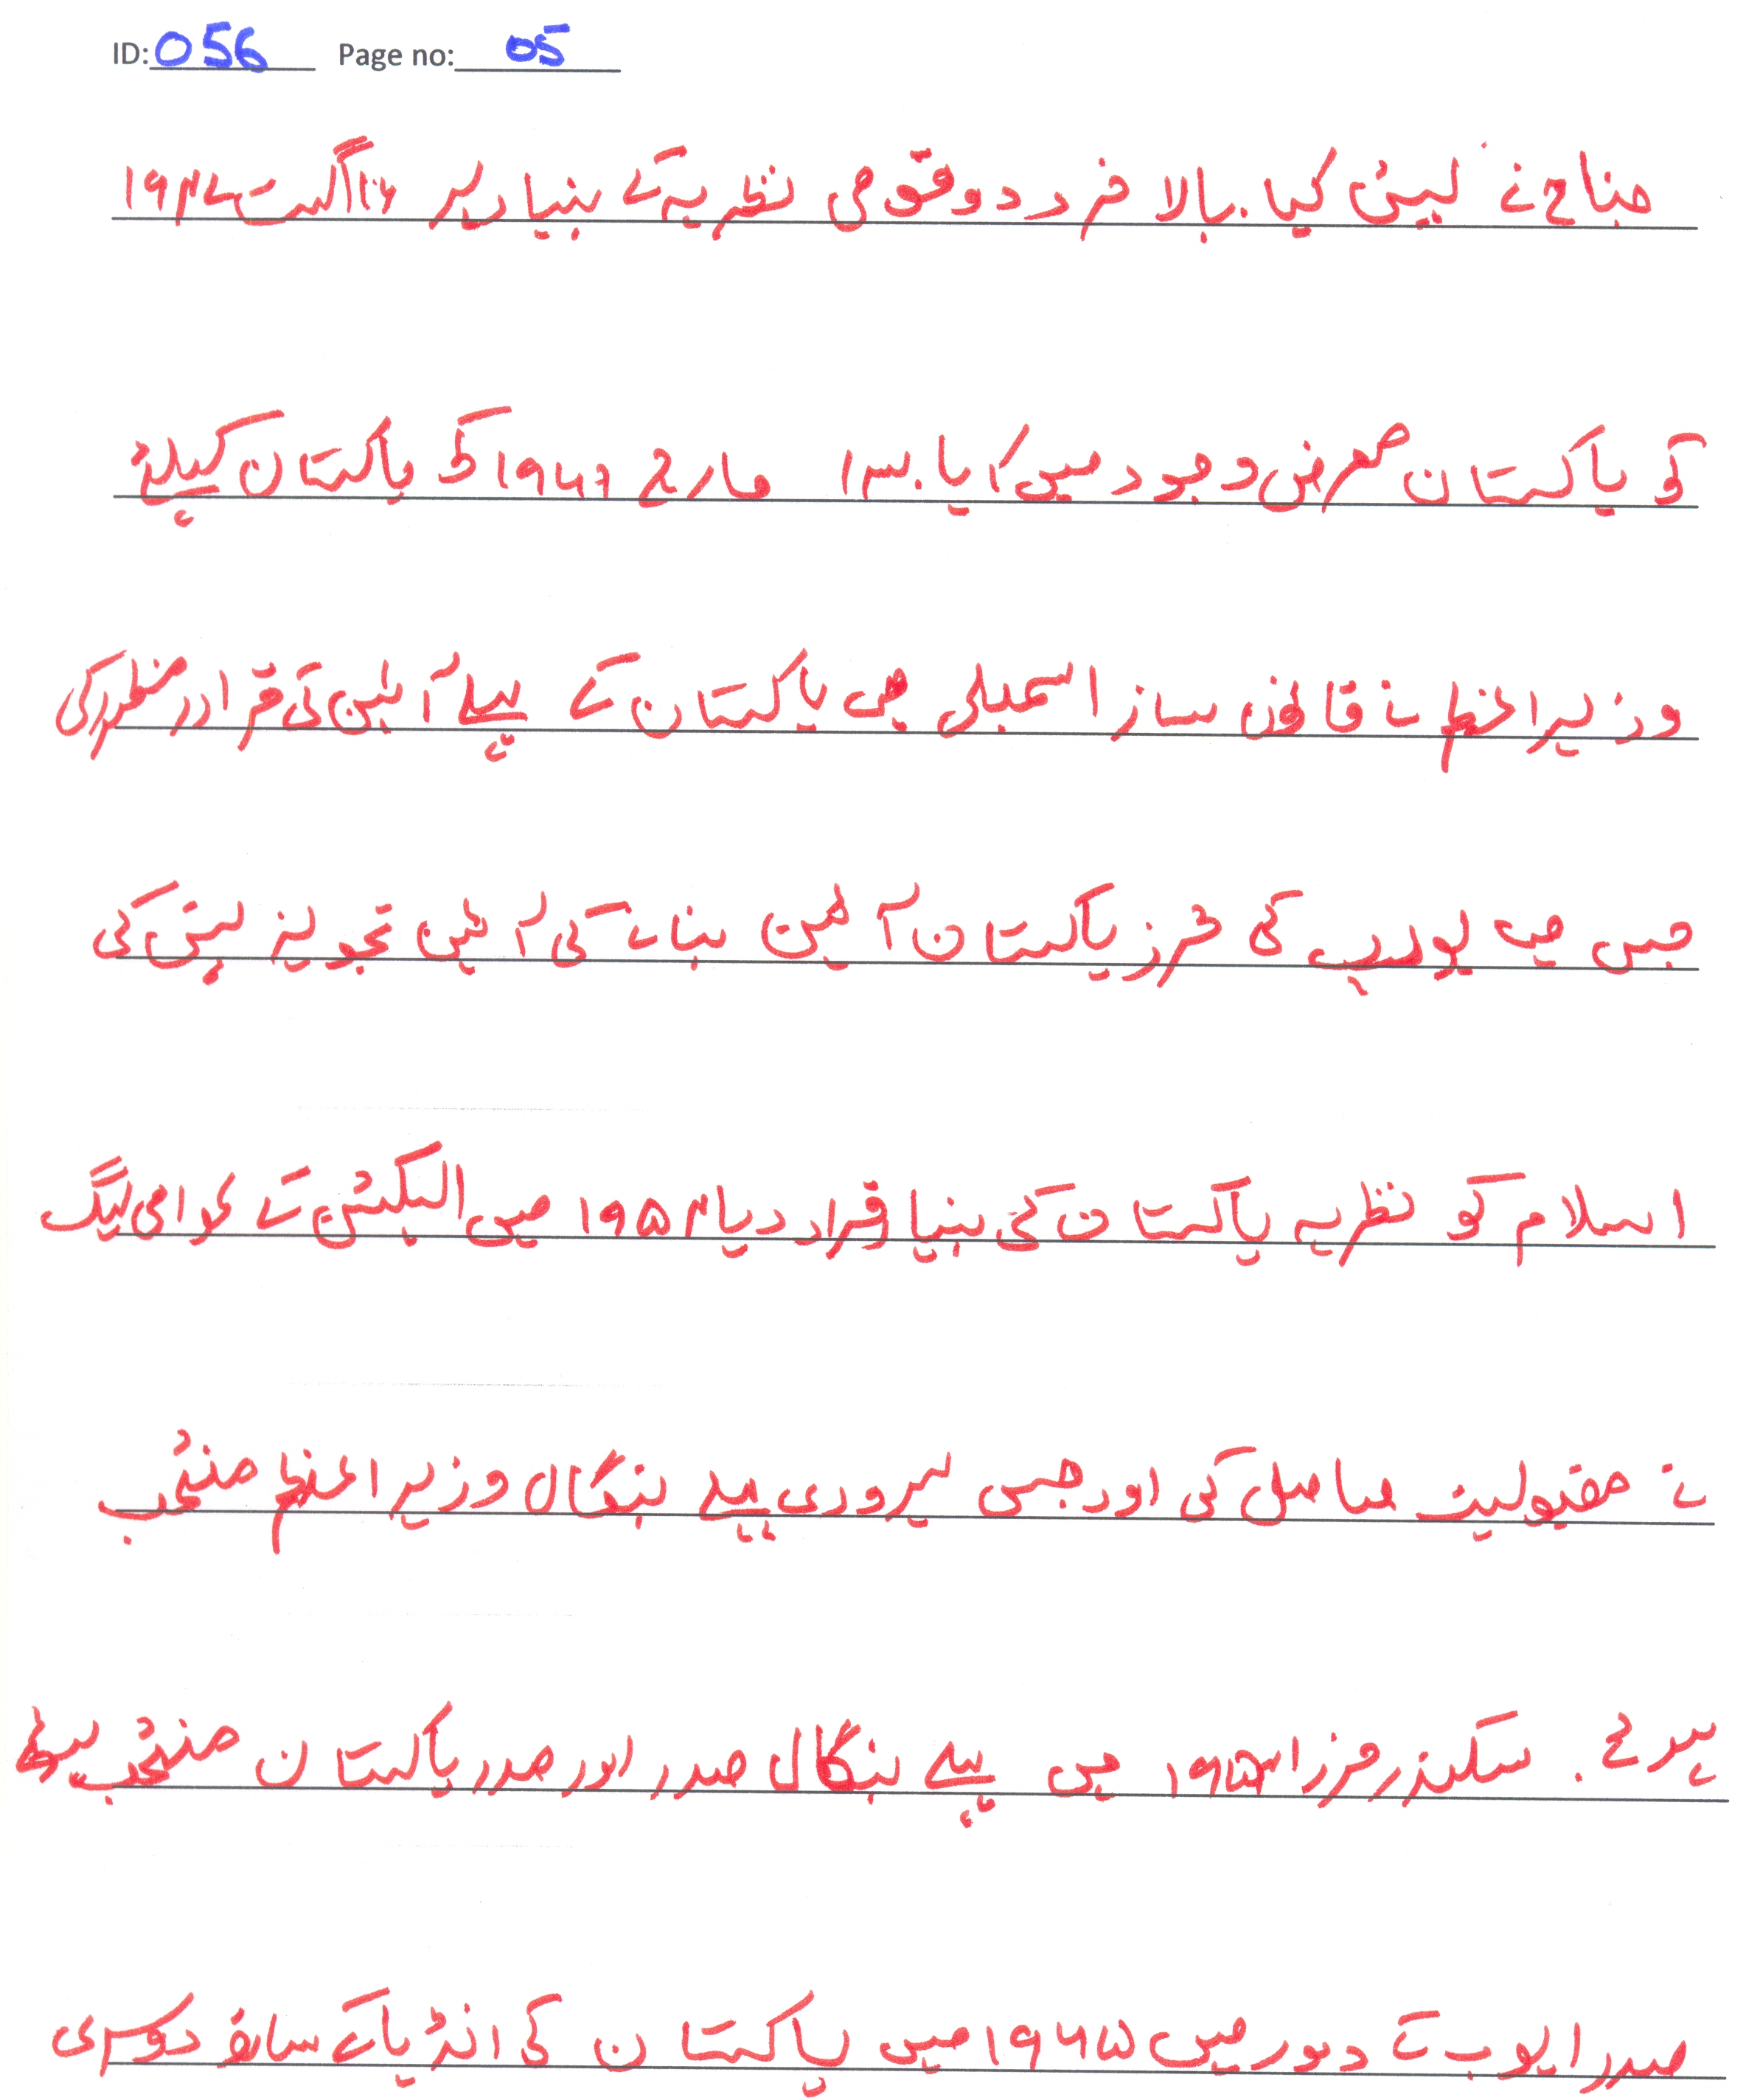 ID: 056 Page no: 05
جناح نے پیش کیا. بالا خر دو قومی نظریہ کے بنیاد پر ۱۴ اگست ۱۹۴۷
کو پاکستان معرض وجود میں آیا. مارچ ۱۹۴۹ کو پاکستان کیلئے
وزیر اعظم نے قانون ساز اسمبلی میں پاکستان کے پہلے آئین کی قرارد منظور کی
جس میں یورپ کی طرز پاکستان آئین بنانے کی آئین تجویز پیش کی
اسلام کو نظریہ پاکستان کی بنیا قرار دیا ۱۹۵۴ میں الیکشن کے عوامی لیگ
نے مقبولیت حاصل کی اور جس سہروردی پہلے بنگال وزیر اعظم منتخب
ہوئے. سکندر مرزا میں پہلے بنگال صدر اور صدر پاکستان منتخب ہوئے
صدر ایوب کے دور میں ۱۹۶۵ میں پاکستان کی انڈیا کے ساتھ دوسری